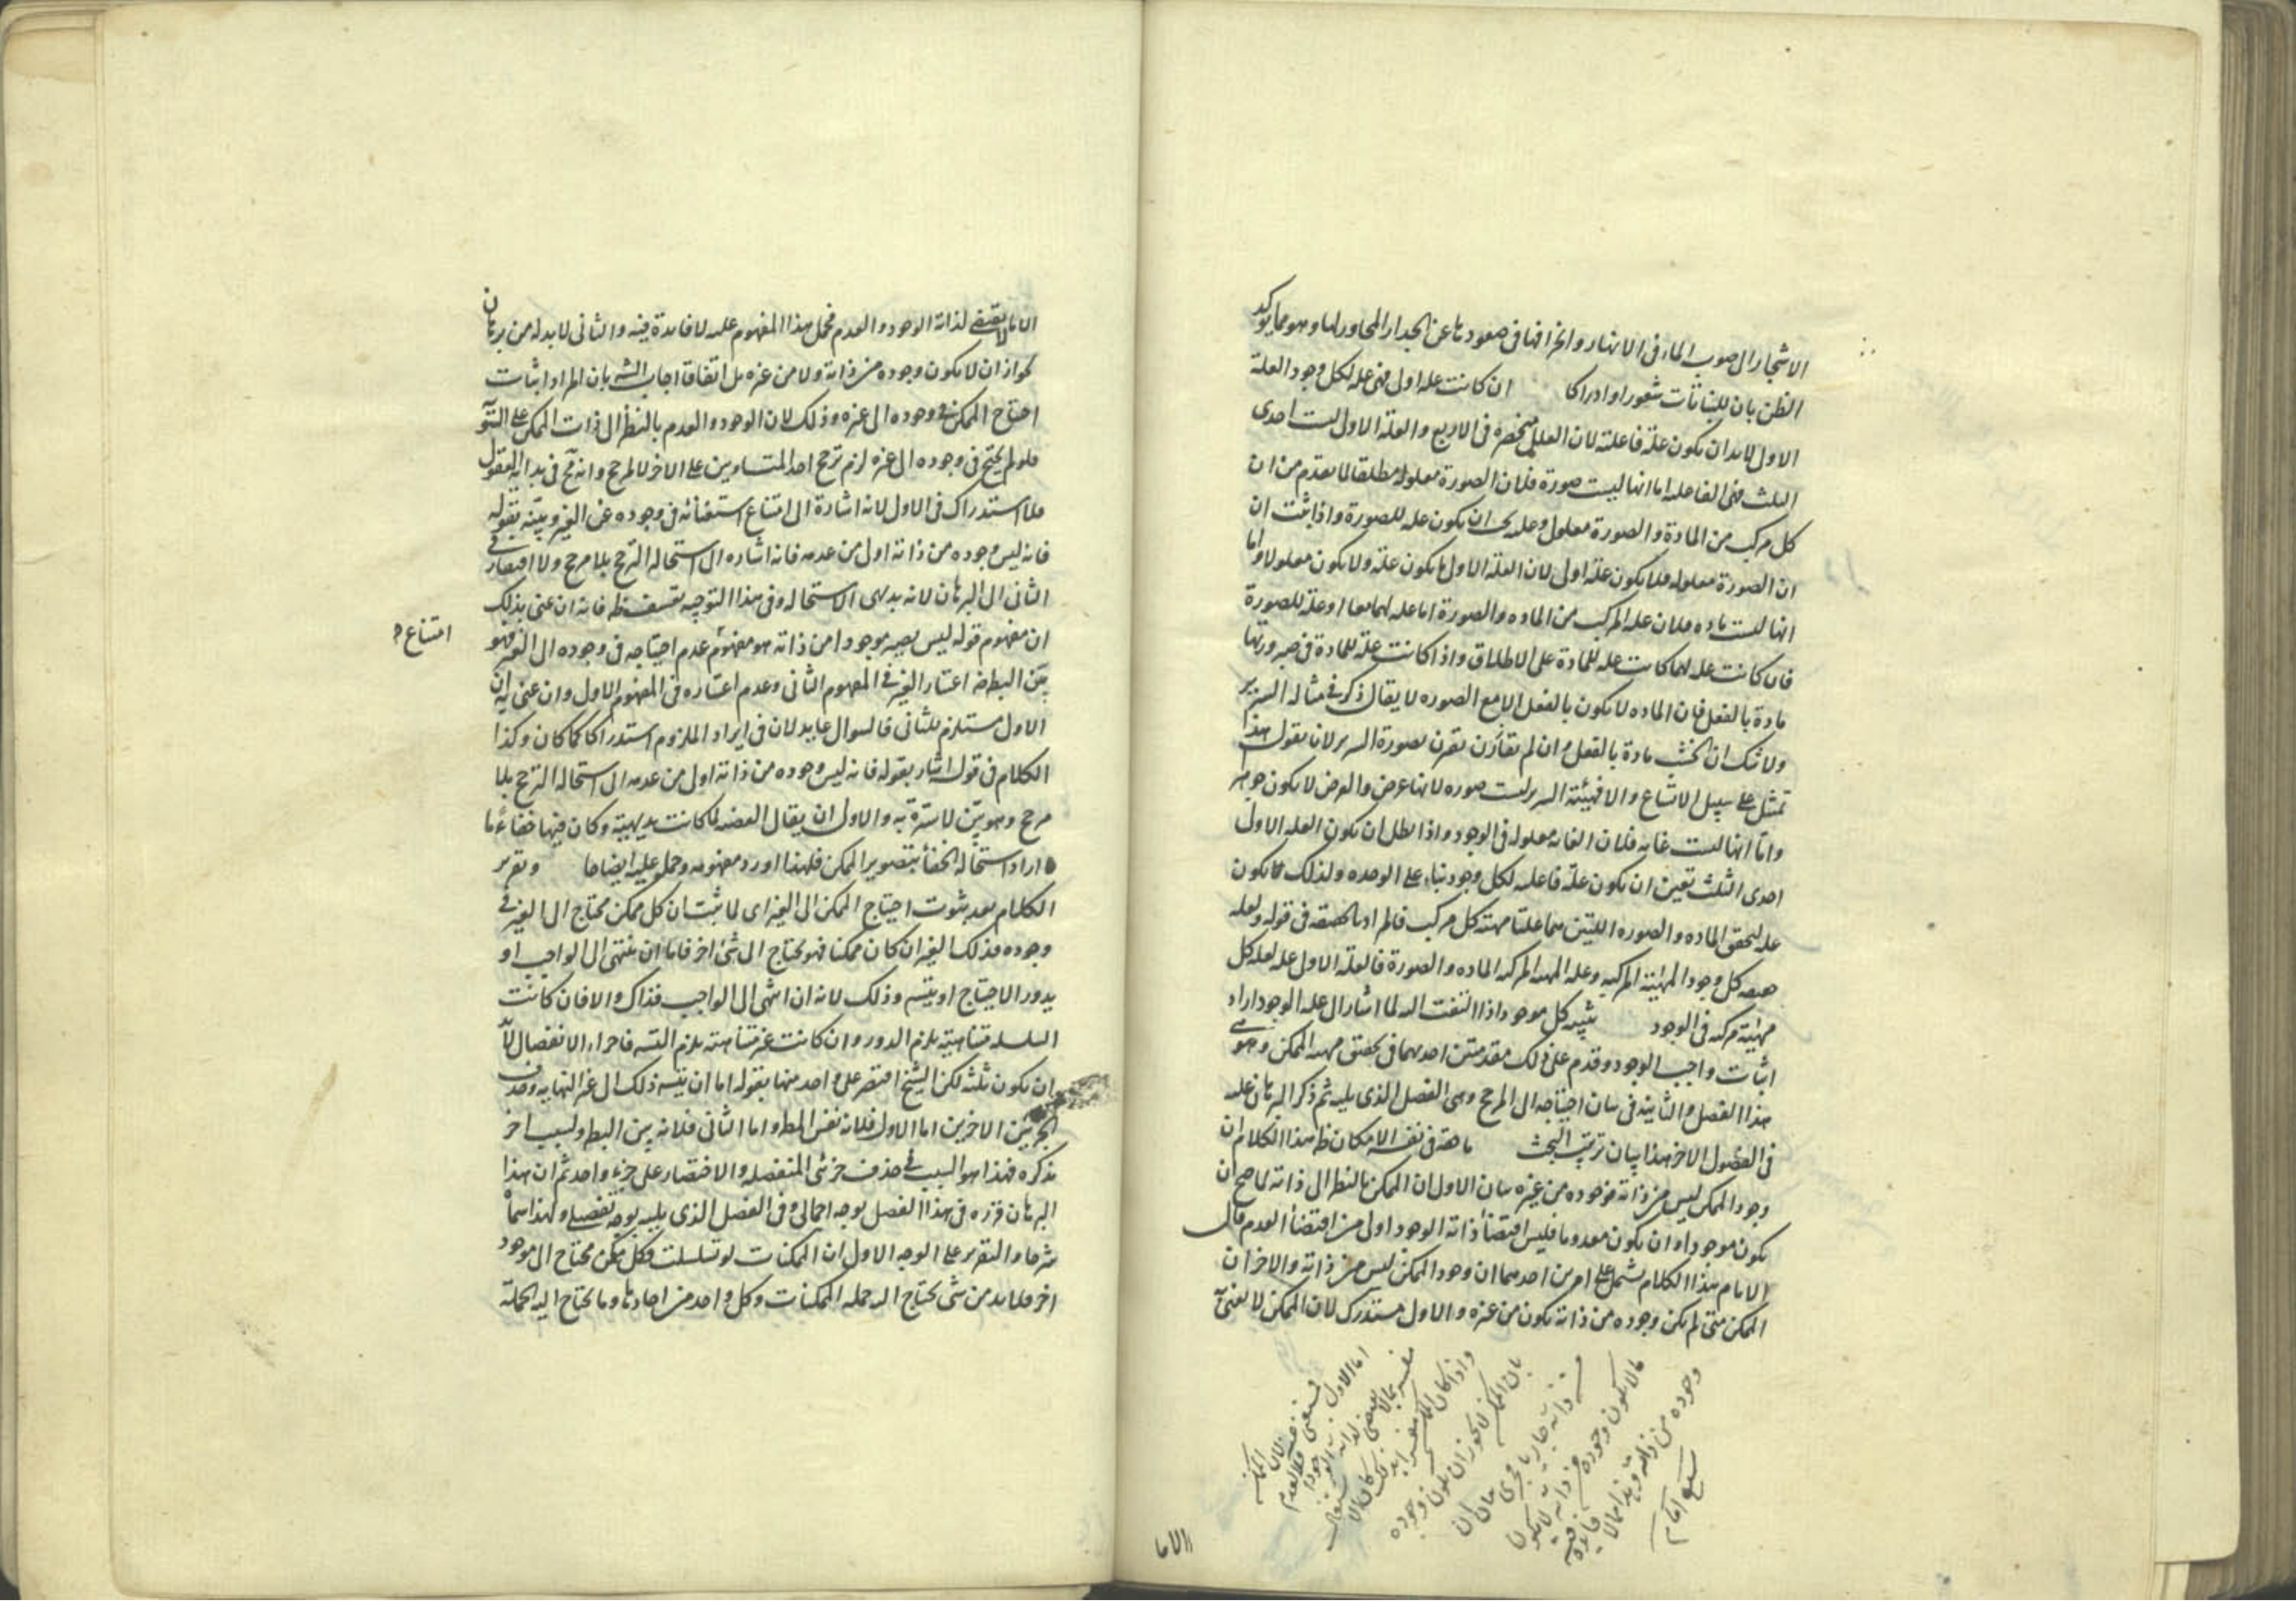 الاشجار الى صوب الماء فى الانهار وانحرافها فى صعودها عن الجدار المجاور لها وهو مما يؤكد
الظن بان للنباتات شعورا وادراكا ان كانت علة اولى فهى علة لكل وجود العلة
الاولى لابد ان يكون علة فاعلية لان العلل منحصرة فى الاربع والعلة الاولى ليست احدى
الثلث فهى الفاعلية اما انها ليست صورة فلان الصورة معلولة مطلقا لما تقدم من ان
كل مركب من المادة والصورة معلول وعلته يجب ان يكون علة للصورة واذا ثبت ان
ان الصورة معلولة فلا يكون علة اولى لان العلة الاولى ما يكون علة ولا يكون معلولا واما
انها ليست مادة فلان علة المركب من المادة والصورة اما علة لهما معا او علة للصورة
فان كانت علة لهما كانت علة للمادة على الاطلاق واذا كانت علة للمادة فى صيرورتها
مادة بالفعل فان المادة لا يكون بالفعل الا مع الصورة لا يقال ذكر فى مثاله السرير
ولا شك ان الخشب مادة بالفعل وان لم يقارن بصورة السرير لانا نقول هذا
تمثل على سبيل الاتساع والا فهيئة السرير ليست صورة لانها عرض والعرض لا يكون جوهر
واما انها ليست غاية فلان الغاية معلولة فى الوجود واذا بطل ان يكون العلة الاولى
احدى الثلث تعين ان يكون علة فاعلية لكل وجود بناء على الوحدة ولذلك يكون
علة لتحقق المادة والصورة اللتين هما علتا مهية كل مركب فالمراد بالحقيقة فى قوله ولعلة
حقيقة كل وجود المهية المركبة وعلة المهية المركبة المادة والصورة فالعلة الاولى علة لعلة كل
مهية مركبة فى الوجود تنبيه كل موجود اذا التفت اليه لما اشار الى علة الوجود اراد
اثبات واجب الوجود وقدم على ذلك مقدمتين احديهما فى تحقيق مهية الممكن وهو فى
هذا الفصل والثانية فى بيان احتياجه الى المرجح وهى الفصل الذى يليه ثم ذكر البرهان عليه
فى الفصول الاخر هذا بيان ترتيب البحث ما حقه فى نفسه الامكان ظ هذا الكلام ان
وجود الممكن ليس من ذاته فوجوده من غيره بيان الاول ان الممكن بالنظر الى ذاته لما صح ان
يكون موجودا وان يكون معدوما فليس اقتضاء ذاته الوجود اولى من اقتضاء العدم قال
الامام هذا الكلام يشمل على امرين احدهما ان وجود الممكن ليس من ذاته والاخر ان
الممكن متى لم يكن وجوده من ذاته يكون من غيره والاول مستدرك لان الممكن لا يعنى به
اما الاول فلان الممكن
مفسر بما لا يقتضى لذاته الوجود والعدم
واذا كان الممكن مفسرا بذلك كان
بان الممكن لا يجوز ان يكون وجوده
من ذاته جار يا مجرى بيان ان
ما لا يكون وجوده من ذاته لا يكون
وجوده من ذاته وهذا مما لا فايدة فيه
الاما
الا ما لا يقتضى لذاته الوجود والعدم فحمل هذا المفهوم عليه لا فايدة فيه والثانى لابد له من برهان
لجواز ان لا يكون وجوده من ذاته ولا من غيره بل اتفاقا اجاب الشه بان المراد اثبات
احتياج الممكن فى وجوده الى غيره وذلك لان الوجود والعدم بالنظر الى ذات الممكن على التسو
فلو لم يحتج فى وجوده الى غيره لزم ترجح احد المتساويين على الاخر لا لمرجح وانه مح فى بداية العقول
فلا استدراك فى الاول لانه اشارة الى امتناع استغنائه فى وجوده عن الغير وبينه بقوله
فانه ليس وجوده من ذاته اولى من عدمه فانه اشارة الى استحالة الترجح بلا مرجح ولا افتقار فى
الثانى الى البرهان لانه بديهى الاستحالة وفى هذا التوجيه تعسف ظ فانه ان عنى بذلك
ان مفهوم قوله ليس يصير موجودا من ذاته هو مفهوم عدم احتياجه فى وجوده الى الغير فهو
امتناع
بين البط ضر اعتبار الغير فى المفهوم الثانى وعدم اعتباره فى المفهوم الاول وان عنى به ان
الاول مستلزم للثانى فالسوال عايد لان فى ايراد الملزوم استدراكا كما كان وكذا
الكلام فى قوله اشار بقوله فانه ليس وجوده من ذاته اولى من عدمه الى استحالة الترجح بلا
مرجح وهو بين لا سترة به والاولى ان يقال القضية لما كانت بديهية وكان فيها خفاء ما
اراد استحالة الخفاء بتصوير الممكن فلهذا اورد مفهومه وحمل عليه ايضاحا وتقرير
الكلام بعد ثبوت احتياج الممكن الى الغير اى لما ثبت ان كل ممكن محتاج الى الغير فى
وجوده فذلك الغير ان كان ممكنا فهو يحتاج الى شئ اخر فاما ان ينتهى الى الواجب او
يدور الاحتياج او يتسه وذلك لانه ان انتهى الى الواجب فذاك والا فان كانت
السلسلة متناهية يلزم الدور وان كانت غير متناهية يلزم التسه فاجزاء الانفصال لابد
ان يكون ثلثة لكن الشيخ اقتصر على واحد منها بقوله اما ان يتسه ذلك الى غير النهاية وحذف
الجزئين الاخرين اما الاول فلانه نفس المط واما الثانى فلانه بين البط ولسبب اخر
يذكره فهذا هو السبب فى حذف جزئى المنفصلة والاقتصار على جزء واحد ثم ان هذا
البرهان قرره فى هذا الفصل بوجه اجمالى وفى الفصل الذى يليه بوجه تفصيلى ولهذا سماه
شرحا والتقرير على الوجه الاول ان الممكنات لو تسلسلت فكل ممكن محتاج الى موجود
اخر فلابد من شئ يحتاج اليه جملة الممكنات وكل واحد من احادها وما يحتاج اليه الجملة